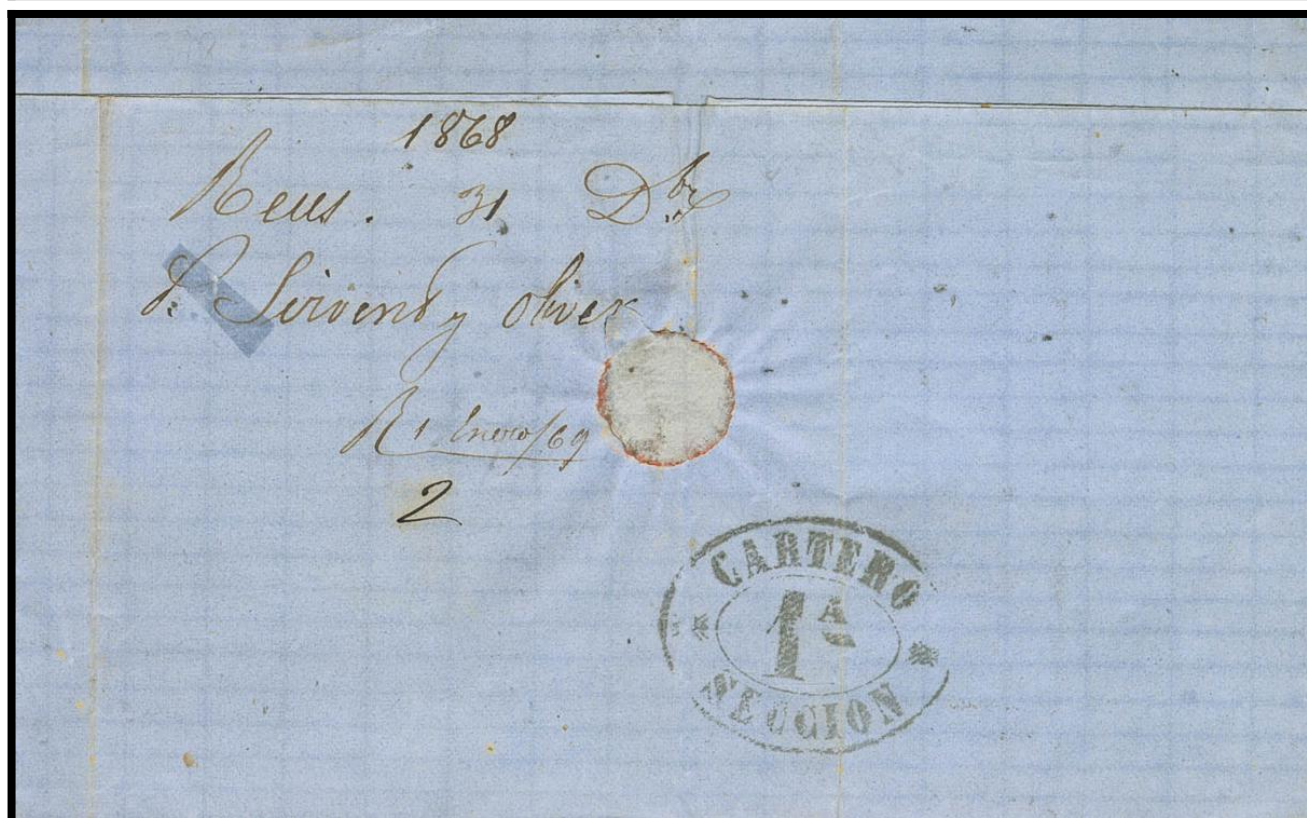 1868
Reus. 31 Dbre
de Sirvent y Oliver
R 1 Enero/69
2
CARTERO
1A
SECCION